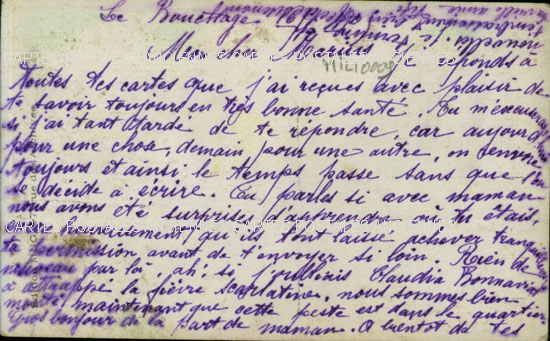 Le Bouchage
Mon cher Marius, Je réponds à
toutes tes cartes que j'ai reçues avec plaisir de
te savoir toujours en très bonne santé. Tu m'excuseras
si j'ai tant tardé de te répondre, car aujourd'hui
pour une chose, demain pour une autre, on renvoie
toujours et ainsi le temps passe sans que l'on
se décide à écrire. Tu parles si avec maman
nous avons été surprises d'apprendre où tu étais.
heureusement qu'ils t'ont laissé achever
ta permission avant de t'envoyer si loin. Rien de
nouveau par là, ah! si j'oubliais Claudia
a attrappé la fièvre scarlatine, nous sommes bien
monté maintenant que cette peste est dans le quartier
Gros bonjour de la part de maman. A bientôt de tes
nouvelles.